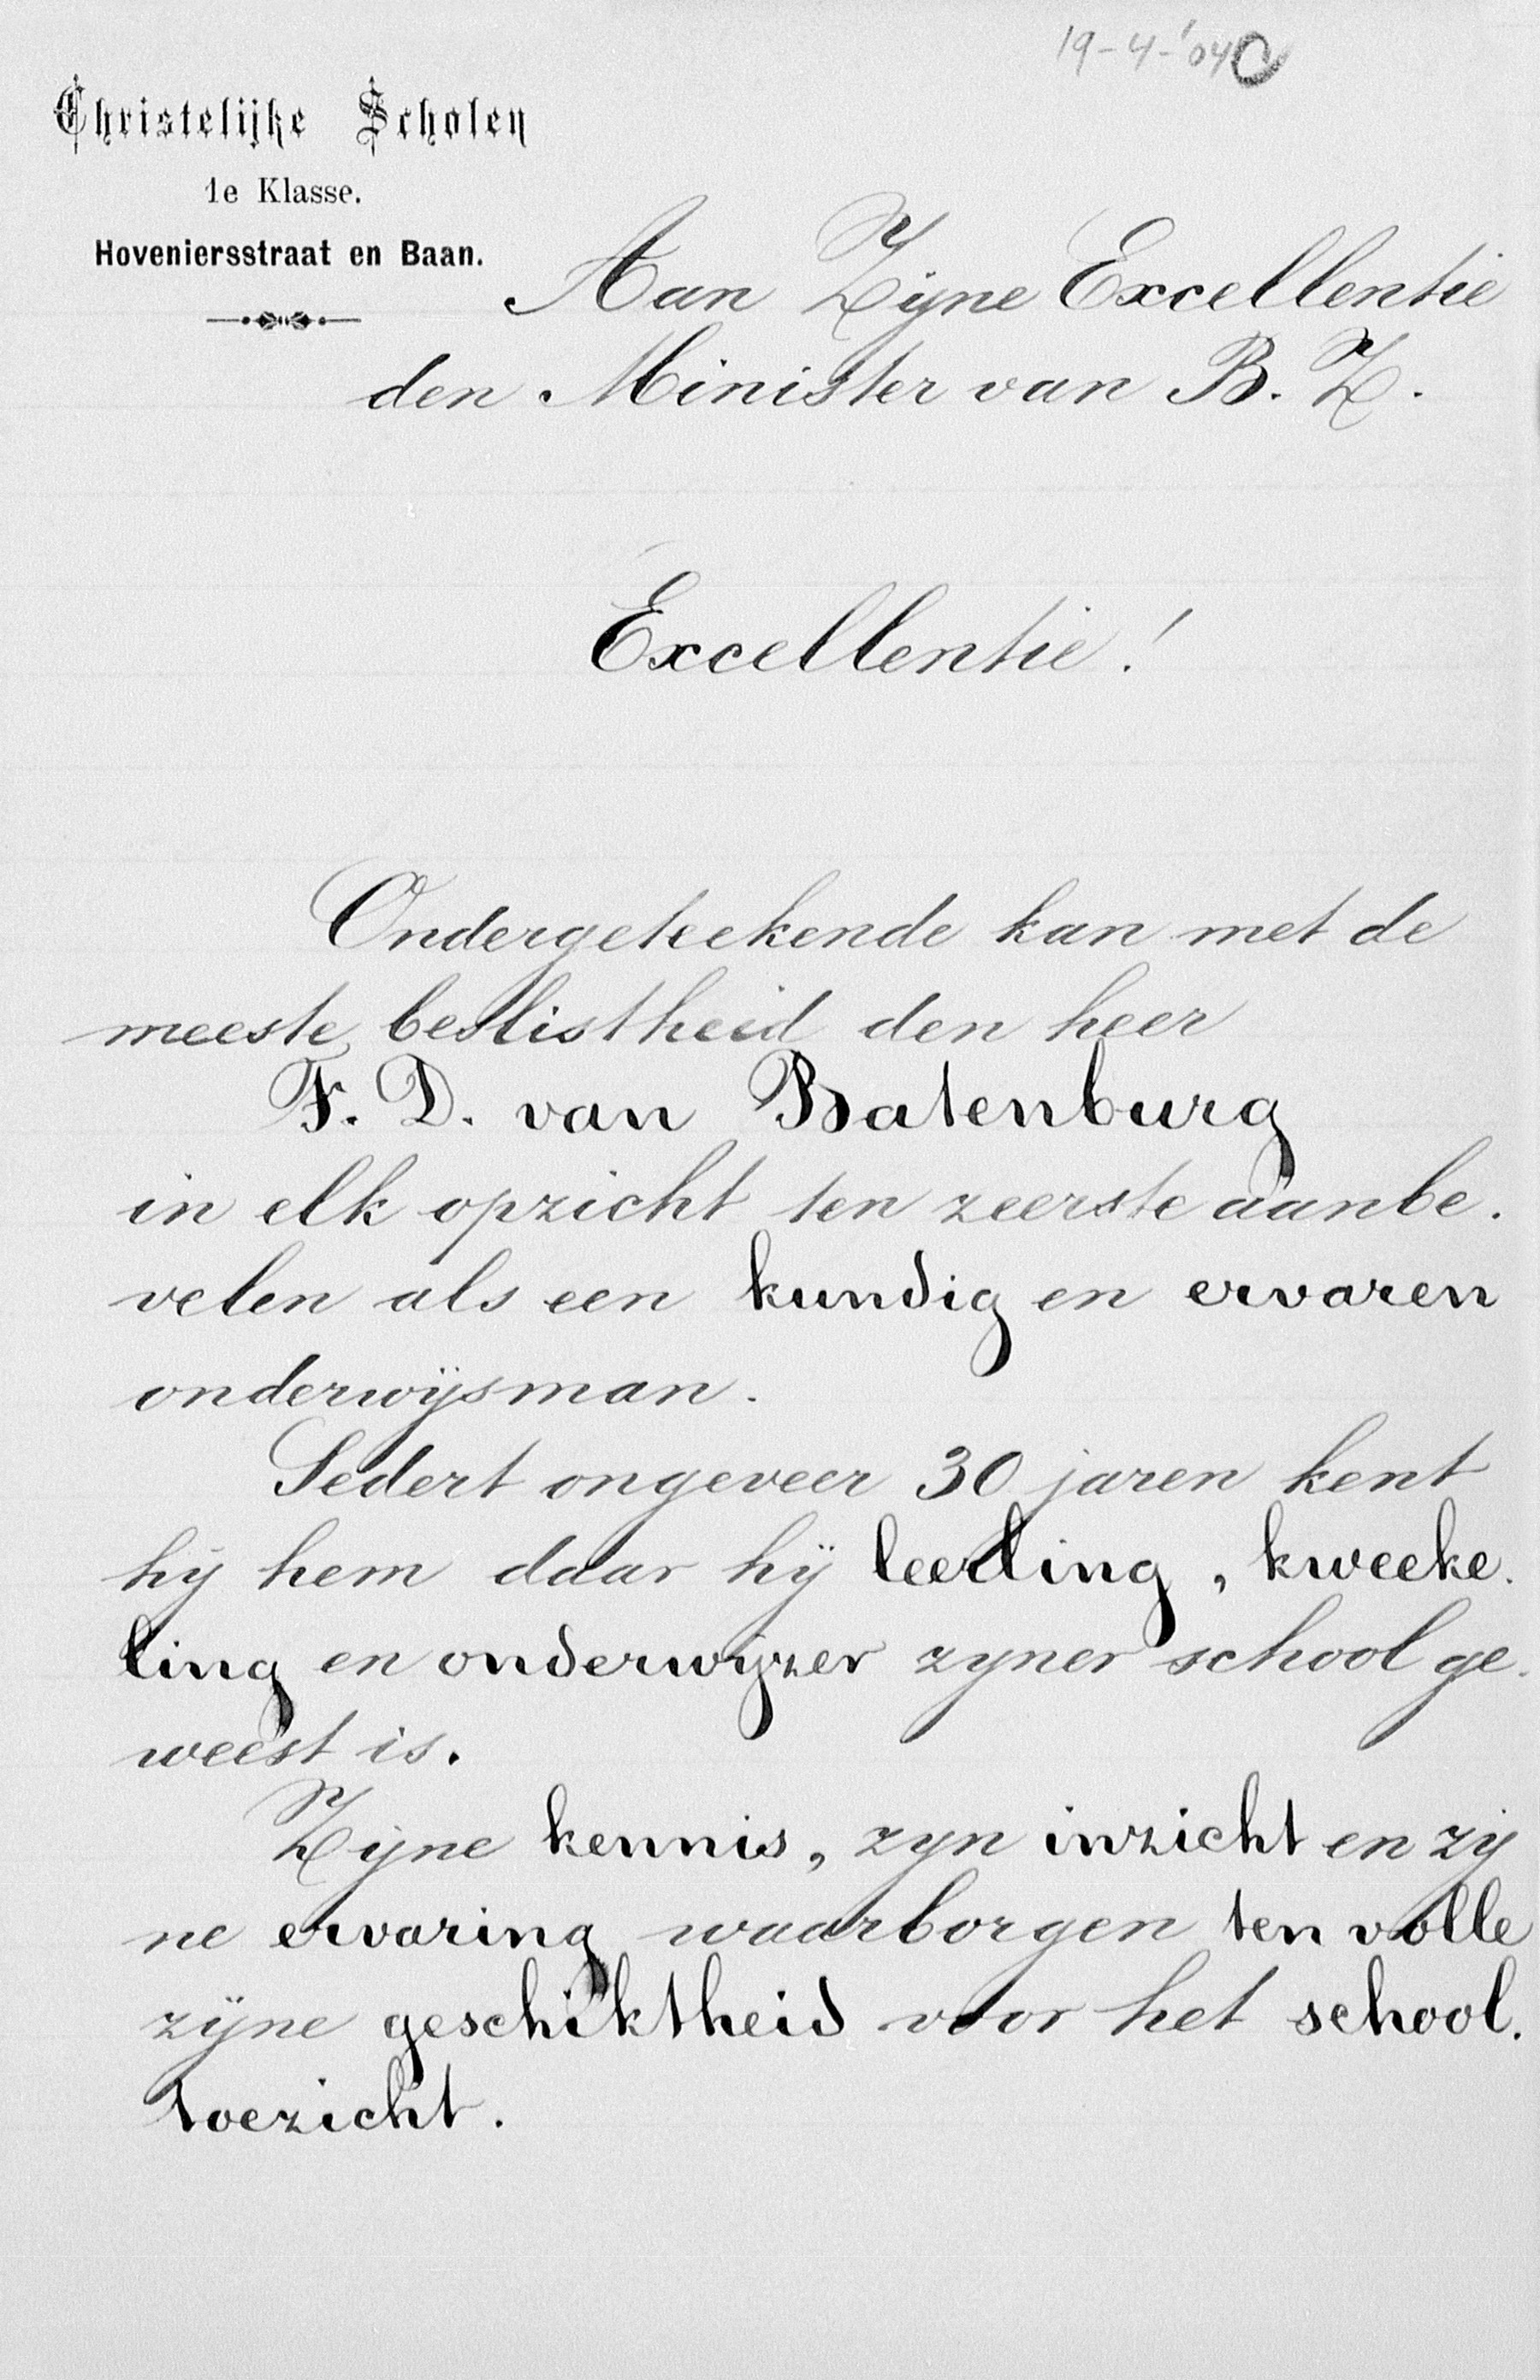 19-4-'04 C
Christelijke Scholen
1e Klasse.
Hoveniersstraat en Baan.
Aan Zijne Excellentie
den Minister van B. Z.
Excellentie!
Ondergeteekende kan met de
meeste beslistheid den heer
F. D. van Batenburg
in elk opzicht ten zeerste aanbe.
velen als een kundig en ervaren
onderwijsman.
Sedert ongeveer 30 jaren kent
hij hem daar hij leerling, kweeke.
ling en onderwijzer zijner school ge.
weest is.
Zijne kennis, zijn inzicht en zij
ne ervaring waarborgen ten volle
zijne geschiktheid voor het school.
toezicht.